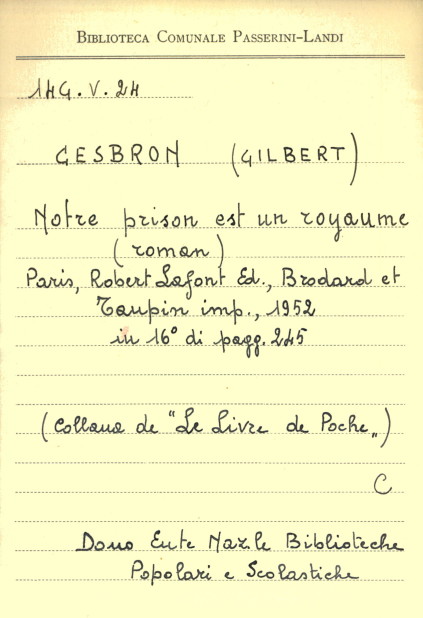 BIBLIOTECA COMUNALE PASSERINI-LANDI
14G.V.24
CESBRON (GILBERT)
Notre prison est un royaume
(roman)
Paris, Robert Lafont Ed., Brodard et
Taupin imp., 1952
in 16° di pagg. 245
(Collana de "Le Livre de Poche„)
C
Dono Ente Naz.le Biblioteche
Popolari e Scolastiche